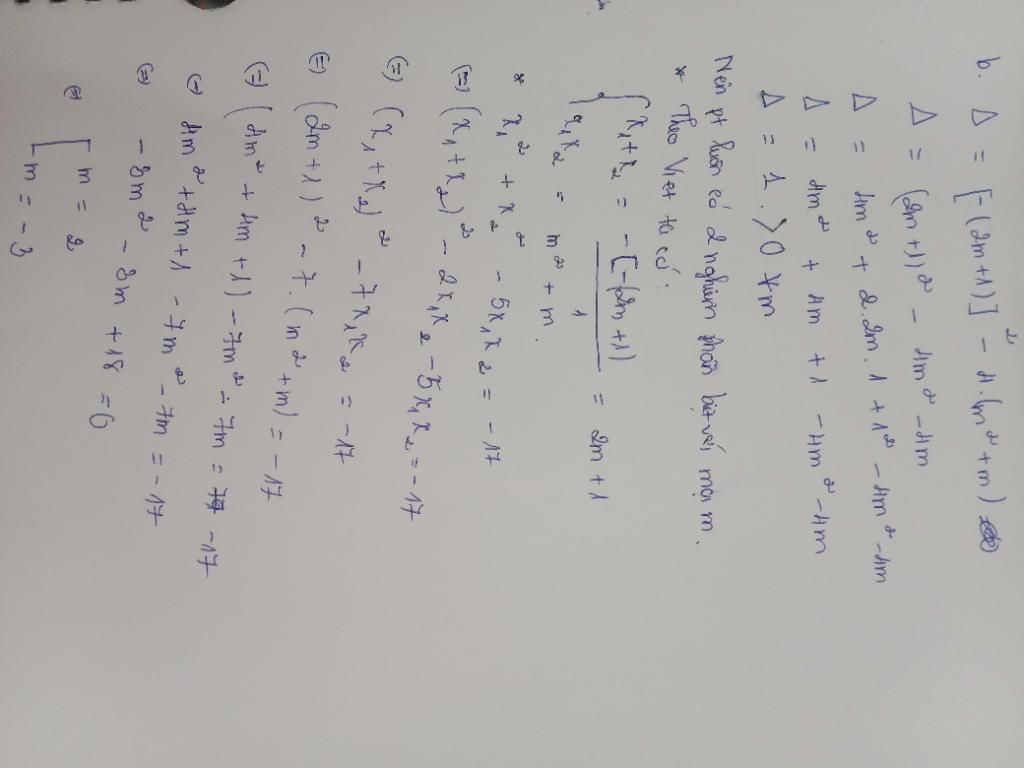 b. Δ = [-(2m+1)]² - 4.(m²+m)
Δ = (2m+1)² - 4m² - 4m
Δ = 4m² + 2.2m.1 + 1² - 4m² - 4m
Δ = 4m² + 4m + 1 - 4m² - 4m
Δ = 1 > 0 ∀m
Nên pt luôn có 2 nghiệm phân biệt với mọi m.
* Theo Viet ta có:
{ x₁ + x₂ = -[-(2m+1)] / 1 = 2m + 1
x₁x₂ = m² + m.
* x₁² + x₂² - 5x₁x₂ = -17
(=) (x₁ + x₂)² - 2x₁x₂ - 5x₁x₂ = -17
(=) (x₁ + x₂)² - 7x₁x₂ = -17
(=) (2m+1)² - 7.(m²+m) = -17
(=) (4m² + 4m + 1) - 7m² - 7m = -17
(=) 4m² + 4m + 1 - 7m² - 7m = -17
(=) -3m² - 3m + 18 = 0
(=) [ m = 2
m = -3